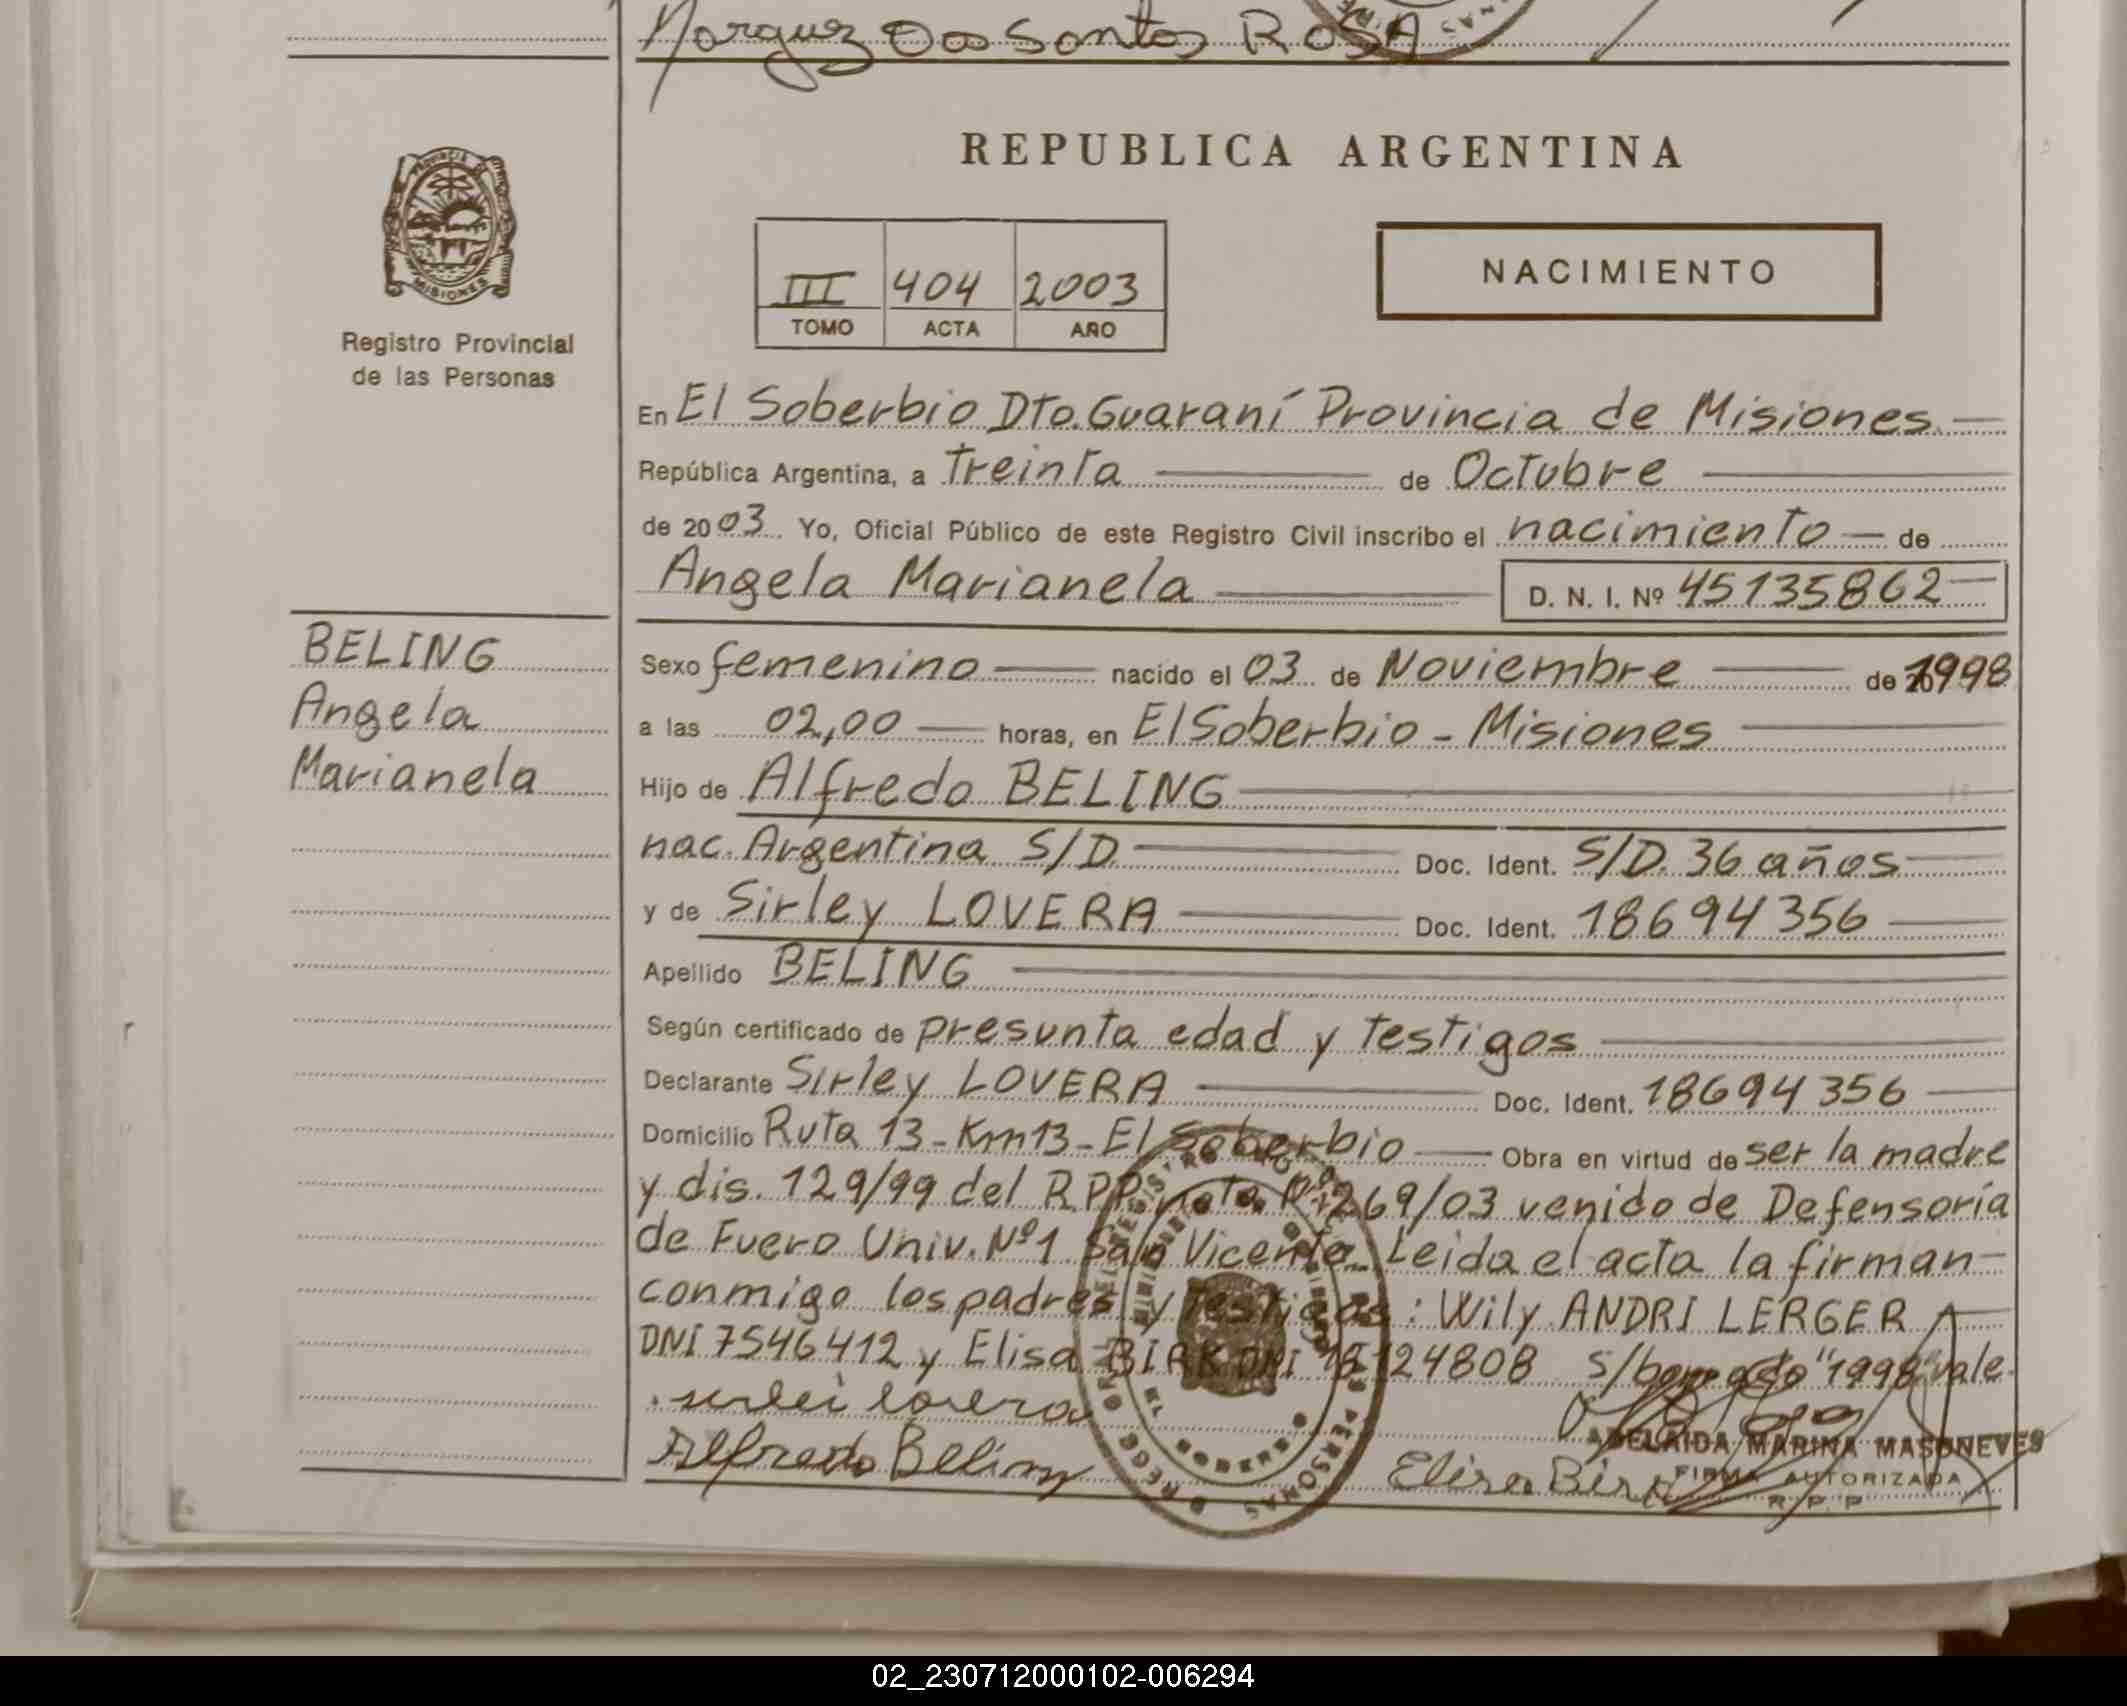 Marquez Dos Santos ROSA
REPUBLICA ARGENTINA
PROVINCIA
MISIONES
Registro Provincial
de las Personas
III 404 2003
TOMO ACTA AÑO
NACIMIENTO
En El Soberbio Dto. Guaraní Provincia de Misiones
República Argentina, a Treinta de Octubre
de 2003 Yo, Oficial Público de este Registro Civil inscribo el nacimiento de
Angela Marianela D. N. I. Nº 45135862
BELING
Angela
Marianela
Sexo femenino nacido el 03 de Noviembre de 1998
a las 02,00 horas, en El Soberbio - Misiones
Hijo de Alfredo BELING
nac. Argentina S/D Doc. Ident. S/D. 36 años
y de Sirley LOVERA Doc. Ident. 18694356
Apellido BELING
Según certificado de presunta edad y testigos
Declarante Sirley LOVERA Doc. Ident. 18694356
Domicilio Ruta 13 - Km 13 - El Soberbio Obra en virtud de ser la madre
y dis. 129/99 del RPP nota Nº 269/03 venido de Defensoría
de Fuero Univ. Nº 1 San Vicente. Leida el acta la firman
conmigo los padres y Testigos: Wily ANDRI LERGER
DNI 7546412 y Elisa BIRK DNI 18124808 s/borrado "1998" vale
sirlei lovera
Alfredo Beling
Elisa Birk
ADELAIDA MARINA MASONEVES
FIRMA AUTORIZADA
R. P. P.
02_230712000102-006294